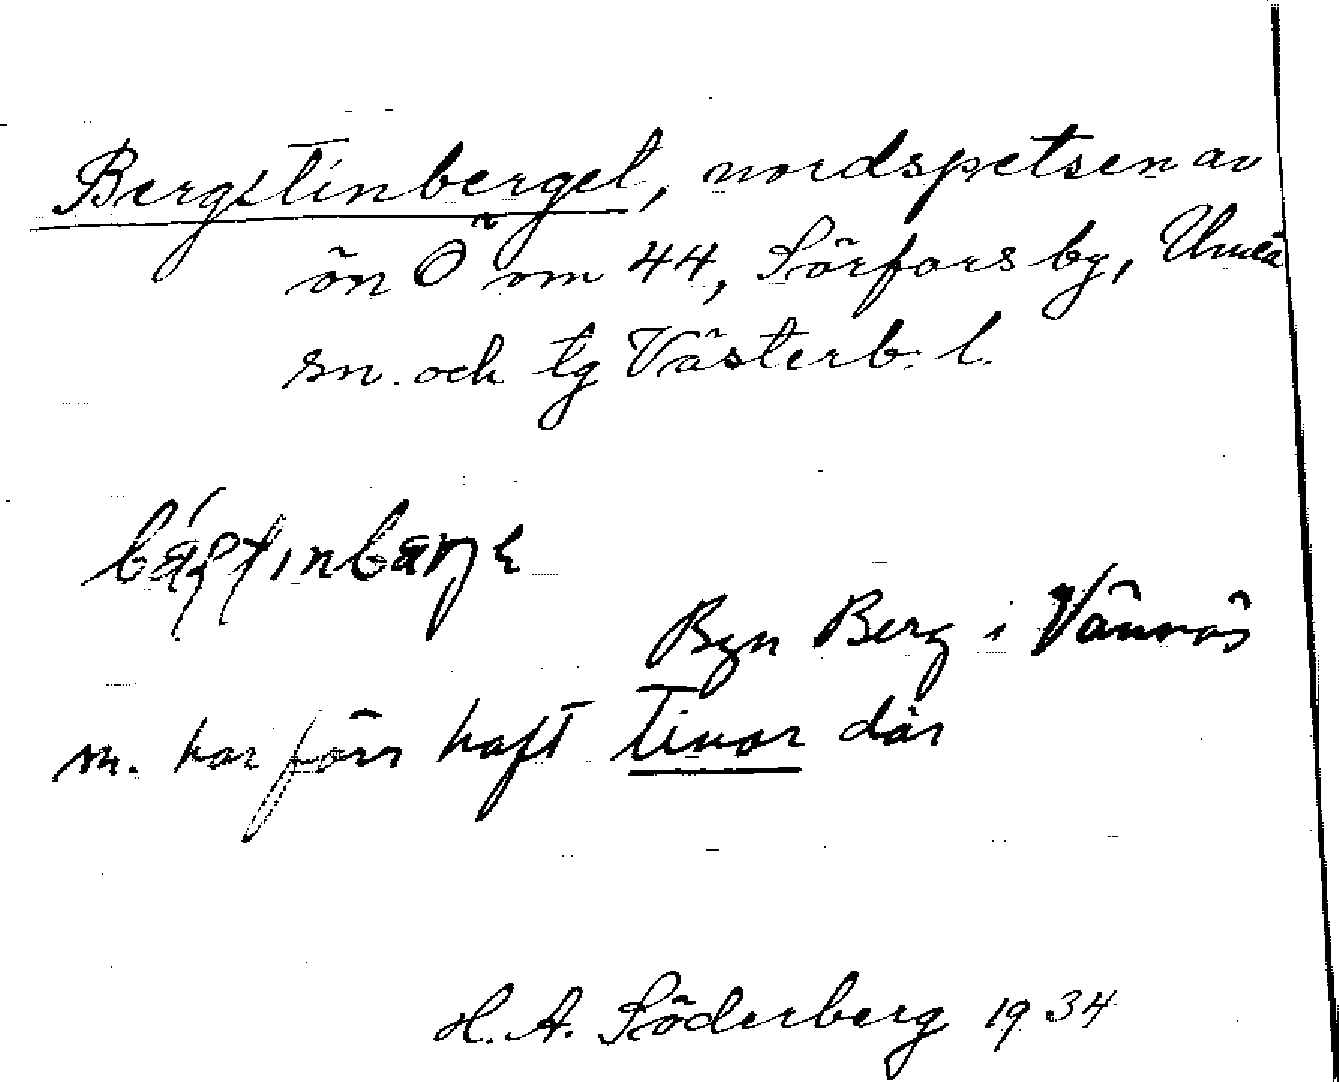 Bergstinberget, nordspetsen av
ön Ö om 44, Sörfors by, Umeå
sn. och tg Västerb. l.
Byn Berg i Vännäs
sn. har förr haft tinor där
H. A. Söderberg 1934